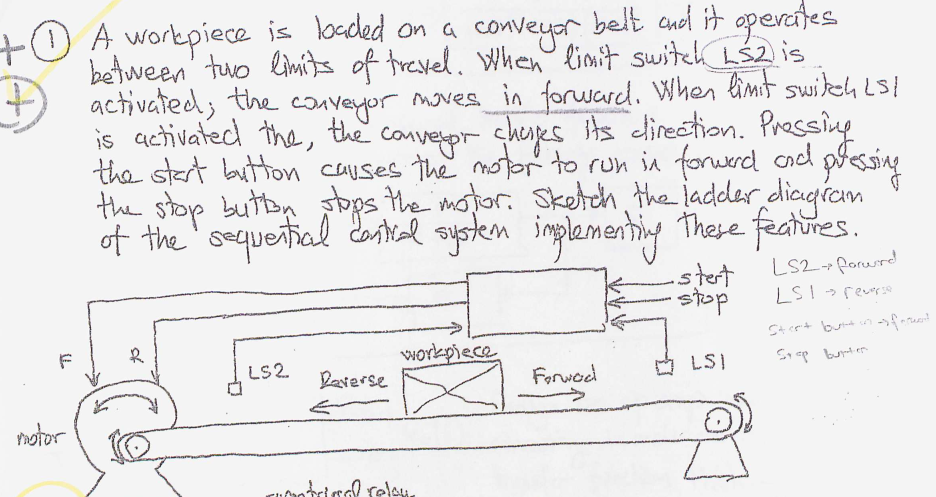 + ① A workpiece is loaded on a conveyor belt and it operates
+ between two limits of travel. When limit switch LS2 is
activated, the conveyor moves in forward. When limit switch LS1
is activated the, the conveyor changes its direction. Pressing
the start button causes the motor to run in forward and pressing
the stop button stops the motor. Sketch the ladder diagram
of the sequential control system implementing these features.
LS2 → forward
LS1 → reverse
start button → forward
Stop button
start
stop
F
R
LS2
workpiece
LS1
Reverse
Forward
motor
relay